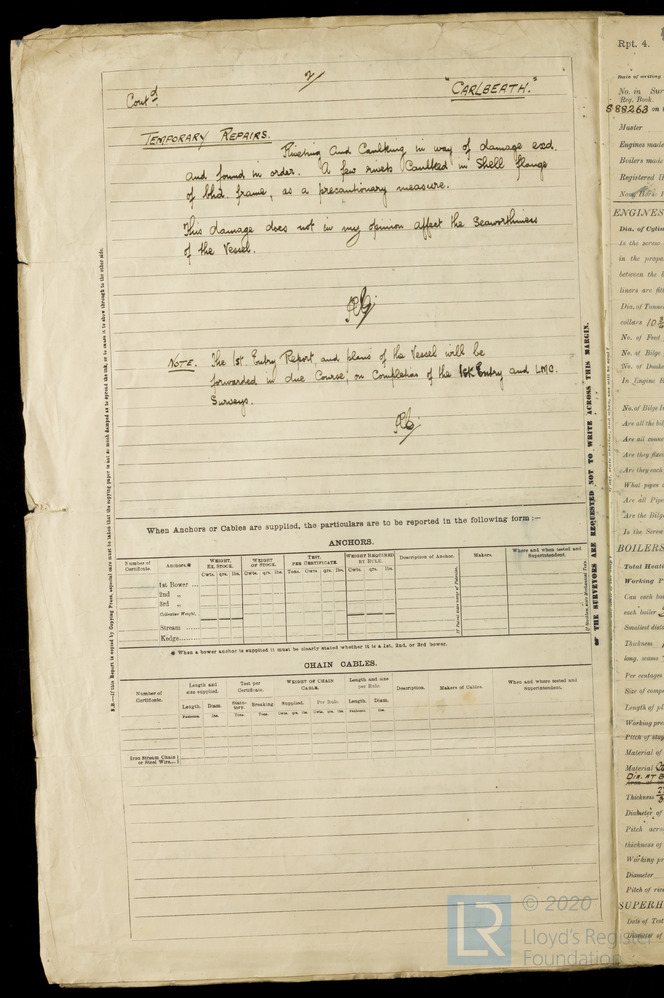 2/
Contd.
"CARLBEATH."
TEMPORARY REPAIRS.
Riveting and Caulking in way of damage exd.
and found in order. A few rivets Caulked in Shell flange
of bhd. frame, as a precautionary measure.
This damage does not in my opinion affect the Seaworthiness
of the Vessel.
NOTE. The 1st Entry Report and plans of the Vessel will be
forwarded in due Course, on Completion of the 1st Entry and LMC.
Surveys.
When Anchors or Cables are supplied, the particulars are to be reported in the following form :—
ANCHORS.
Number of Certificate. Anchors.* WEIGHT, EX. STOCK. WEIGHT OF STOCK. TEST, PER CERTIFICATE. WEIGHT REQUIRED BY RULE. Description of Anchor. Makers. Where and when tested and Superintendent.
Cwts. qrs. lbs. Cwts. qrs. lbs. Tons. Cwts. qrs. lbs. Cwts. qrs. lbs.
1st Bower ...
2nd „
3rd „
Collective Weight.
Stream ......
Kedge......
* When a bower anchor is supplied it must be clearly stated whether it is a 1st, 2nd, or 3rd bower.
CHAIN CABLES.
Number of Certificate. Length and size supplied. Test per Certificate. WEIGHT OF CHAIN CABLE. Length and size per Rule. Description. Makers of Cables. When and where tested and Superintendent.
Length. Diam. Statutory. Breaking. Supplied. Per Rule. Length. Diam.
Fathoms. Ins. Tons. Tons. Cwts. qrs. lbs. Cwts. qrs. lbs. Fathoms. Ins.
Iron Stream Chain
or Steel Wire...
THE SURVEYORS ARE REQUESTED NOT TO WRITE ACROSS THIS MARGIN.
Rpt. 4.
Date of writing
No. in Sur
Reg. Book.
88263 on
Master
Engines made
Boilers made
Registered H
ENGINES
Dia. of Cylin
Is the screw
in the prope
between the b
liners are fitt
Dia. of Tunne
collars 10
No. of Feed
No. of Bilge
No. of Donke
In Engine R
No. of Bilge I
Are all the bil
Are all
Are they fixed
Are they each
What pipes c
Are all Pipe
Are the Bilge
Is the Screw
BOILERS
Total Heati
Working P
Can each bo
each boiler
Smallest dista
Thickness
long. seams
Per centages
Size of compe
Length of pl
Working pre
Pitch of stay
Material of
Material
DIA. AT B
Thickness
Diameter of
Pitch acros
thickness of
Working pr
Diameter
Pitch of rive
SUPERH
Date of Test
Diameter of
LR
© 2020
Lloyd's Register
Foundation